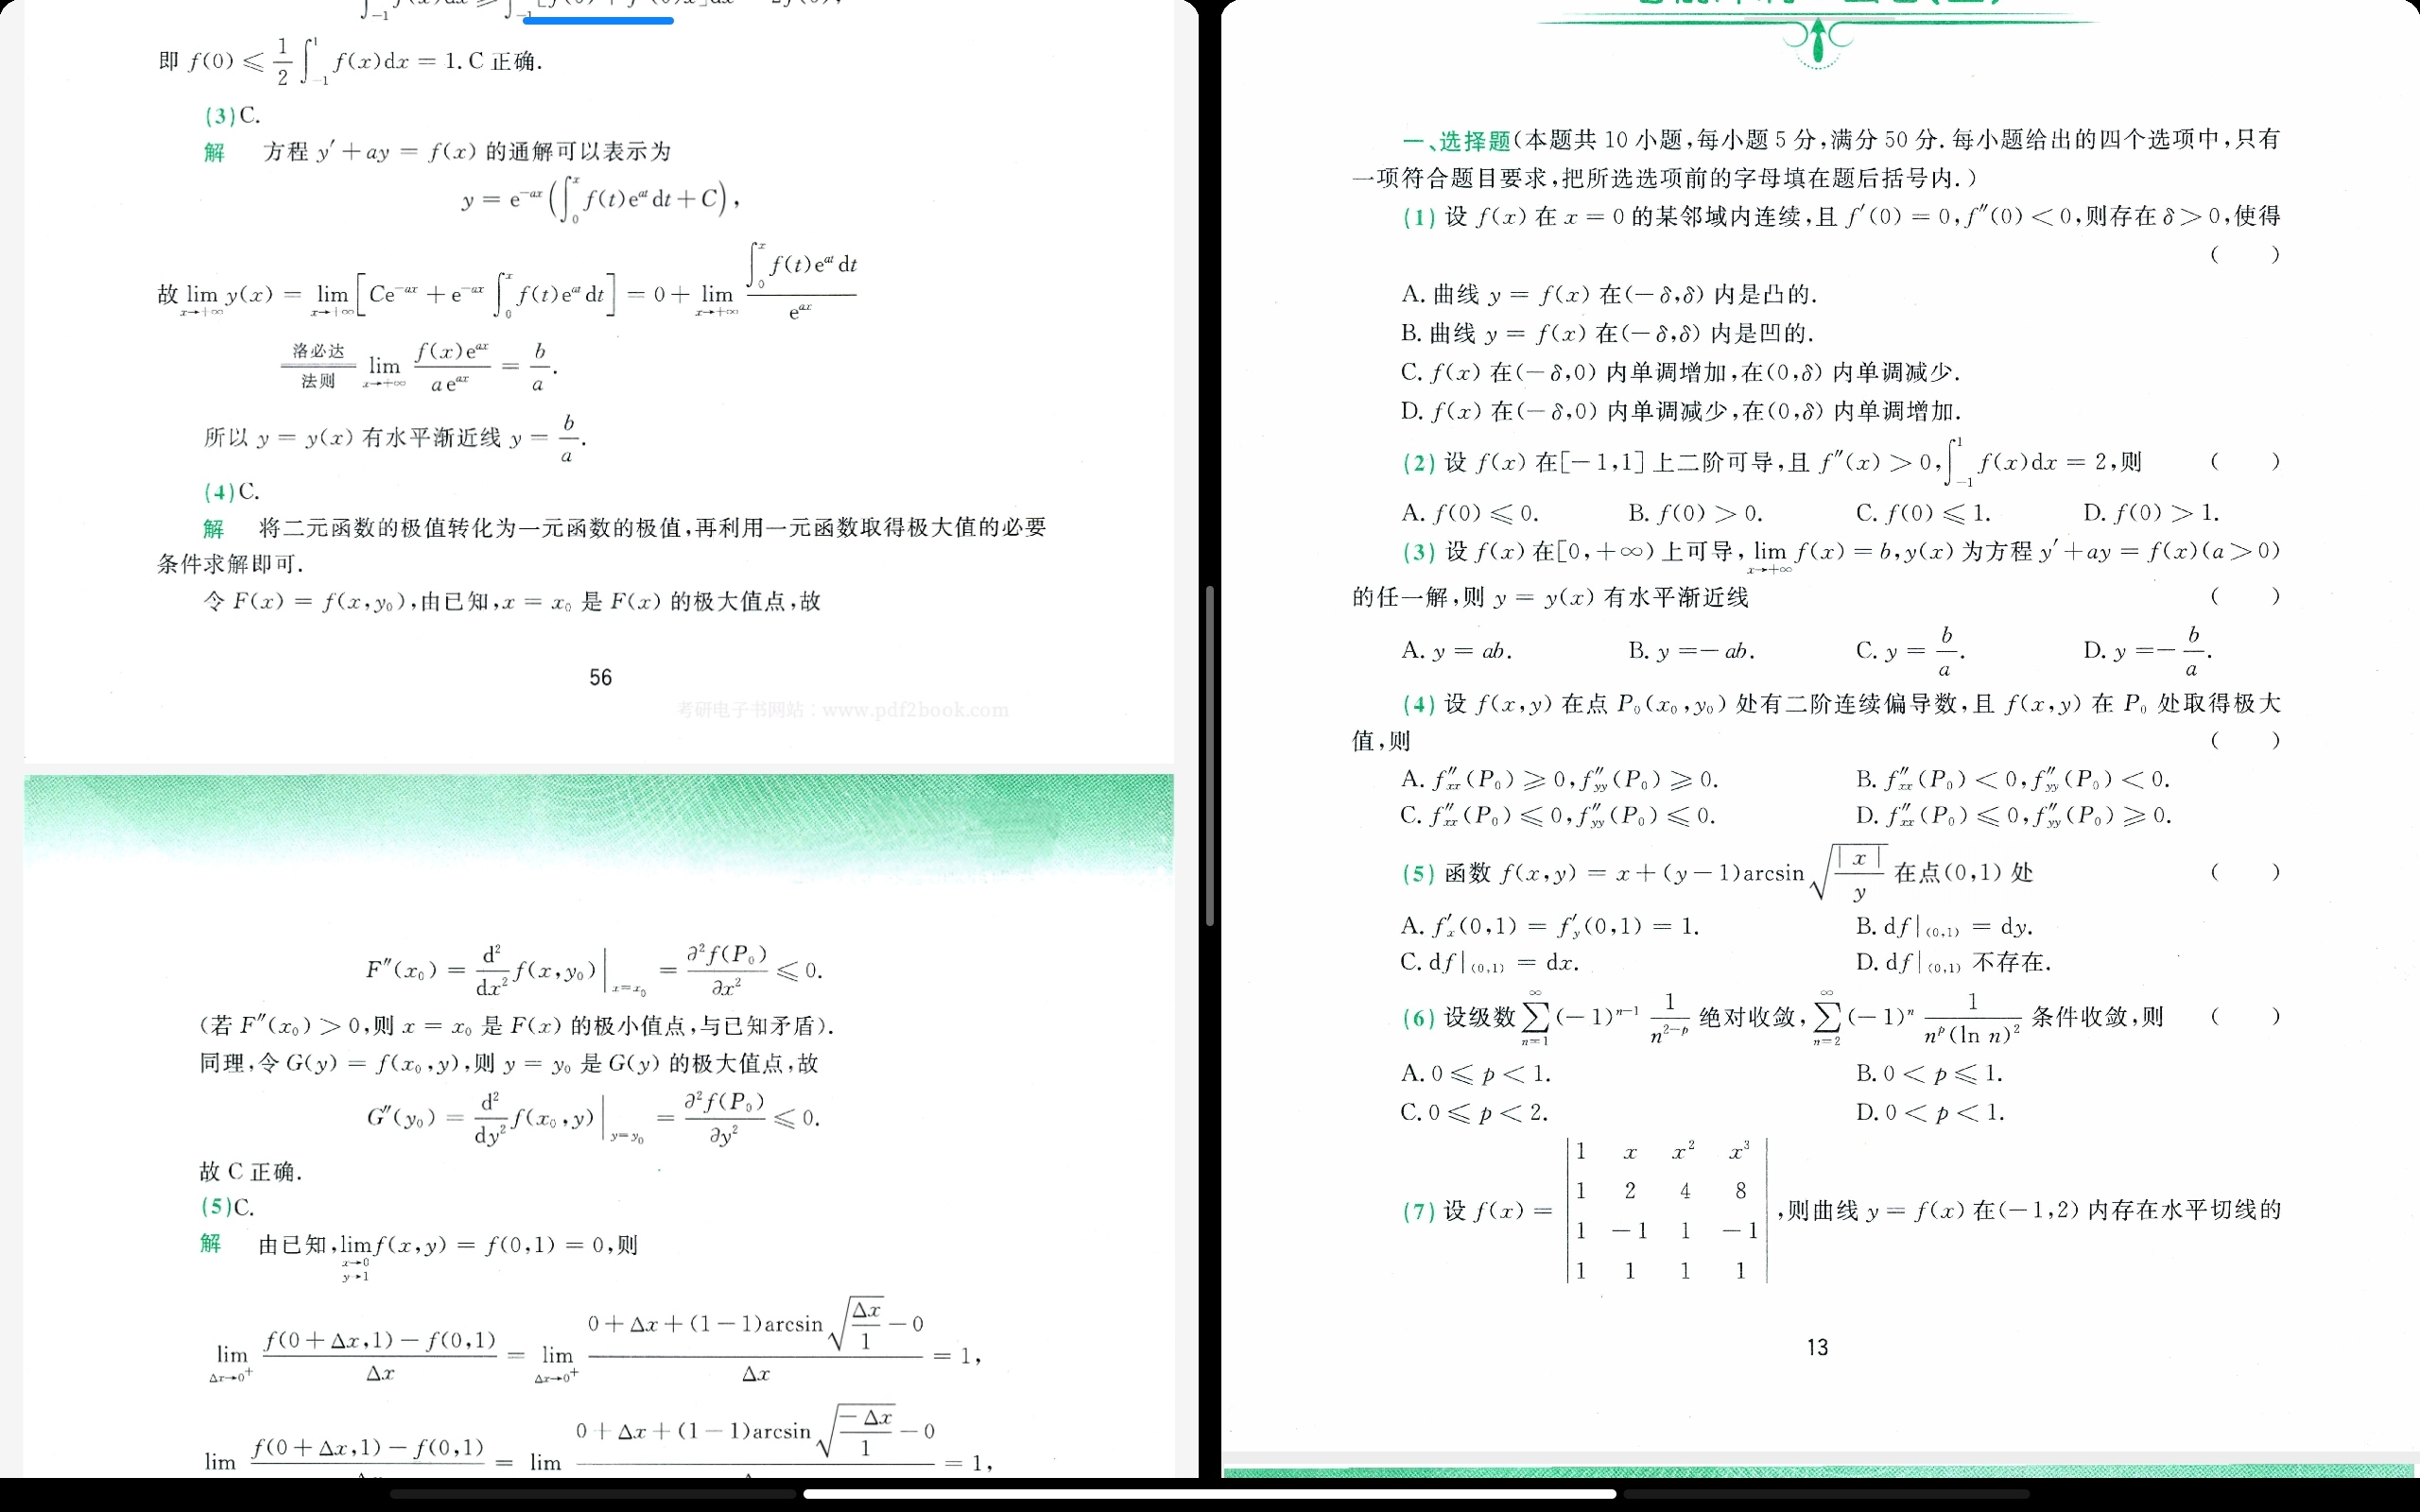 即 f(0) ⩽ 1/2 ∫_{-1}^{1} f(x)dx = 1. C 正确.
(3)C.
解 方程 y′+ay = f(x) 的通解可以表示为
y = e^{-ax}(∫_0^x f(t)e^{at}dt+C),
故 lim_{x→+∞} y(x) = lim_{x→+∞}[Ce^{-ax}+e^{-ax}∫_0^x f(t)e^{at}dt] = 0+ lim_{x→+∞} ∫_0^x f(t)e^{at}dt / e^{ax}
洛必达法则 = lim_{x→+∞} f(x)e^{ax} / ae^{ax} = b/a.
所以 y = y(x) 有水平渐近线 y = b/a.
(4)C.
解 将二元函数的极值转化为一元函数的极值,再利用一元函数取得极大值的必要
条件求解即可.
令 F(x) = f(x,y₀),由已知,x = x₀ 是 F(x) 的极大值点,故
56
考研电子书网站：www.pdf2book.com
F″(x₀) = d²/dx² f(x,y₀)|_{x=x₀} = ∂²f(P₀)/∂x² ⩽ 0.
(若 F″(x₀) > 0,则 x = x₀ 是 F(x) 的极小值点,与已知矛盾).
同理,令 G(y) = f(x₀,y),则 y = y₀ 是 G(y) 的极大值点,故
G″(y₀) = d²/dy² f(x₀,y)|_{y=y₀} = ∂²f(P₀)/∂y² ⩽ 0.
故 C 正确.
(5)C.
解 由已知,lim_{x→0, y→1} f(x,y) = f(0,1) = 0,则
lim_{Δx→0⁺} (f(0+Δx,1)−f(0,1))/Δx = lim_{Δx→0⁺} (0+Δx+(1−1)arcsin√(Δx/1)−0)/Δx = 1,
lim f(0+Δx,1)−f(0,1) = lim 0+Δx+(1−1)arcsin√(−Δx/1)−0 = 1,
一、选择题(本题共 10 小题,每小题 5 分,满分 50 分. 每小题给出的四个选项中,只有
一项符合题目要求,把所选选项前的字母填在题后括号内.)
(1) 设 f(x) 在 x = 0 的某邻域内连续,且 f′(0) = 0,f″(0) < 0,则存在 δ > 0,使得
( )
A. 曲线 y = f(x) 在(−δ,δ) 内是凸的.
B. 曲线 y = f(x) 在(−δ,δ) 内是凹的.
C. f(x) 在(−δ,0) 内单调增加,在(0,δ) 内单调减少.
D. f(x) 在(−δ,0) 内单调减少,在(0,δ) 内单调增加.
(2) 设 f(x) 在[−1,1] 上二阶可导,且 f″(x) > 0,∫_{-1}^{1} f(x)dx = 2,则 ( )
A. f(0) ⩽ 0. B. f(0) > 0. C. f(0) ⩽ 1. D. f(0) > 1.
(3) 设 f(x) 在[0,+∞) 上可导,lim_{x→+∞} f(x) = b,y(x) 为方程 y′+ay = f(x)(a > 0)
的任一解,则 y = y(x) 有水平渐近线 ( )
A. y = ab. B. y =− ab. C. y = b/a. D. y =− b/a.
(4) 设 f(x,y) 在点 P₀(x₀,y₀) 处有二阶连续偏导数,且 f(x,y) 在 P₀ 处取得极大
值,则 ( )
A. f″_{xx}(P₀) ⩾ 0,f″_{yy}(P₀) ⩾ 0. B. f″_{xx}(P₀) < 0,f″_{yy}(P₀) < 0.
C. f″_{xx}(P₀) ⩽ 0,f″_{yy}(P₀) ⩽ 0. D. f″_{xx}(P₀) ⩽ 0,f″_{yy}(P₀) ⩾ 0.
(5) 函数 f(x,y) = x+(y−1)arcsin√(|x|/y) 在点(0,1) 处 ( )
A. f′_x(0,1) = f′_y(0,1) = 1. B. df|_{(0,1)} = dy.
C. df|_{(0,1)} = dx. D. df|_{(0,1)} 不存在.
(6) 设级数 ∑_{n=1}^{∞}(−1)^{n−1} 1/n^{2−p} 绝对收敛,∑_{n=2}^{∞}(−1)^n 1/(n^p(ln n)²) 条件收敛,则 ( )
A. 0 ⩽ p < 1. B. 0 < p ⩽ 1.
C. 0 ⩽ p < 2. D. 0 < p < 1.
(7) 设 f(x) = | 1 x x² x³ ; 1 2 4 8 ; 1 −1 1 −1 ; 1 1 1 1 | ,则曲线 y = f(x) 在(−1,2) 内存在水平切线的
13